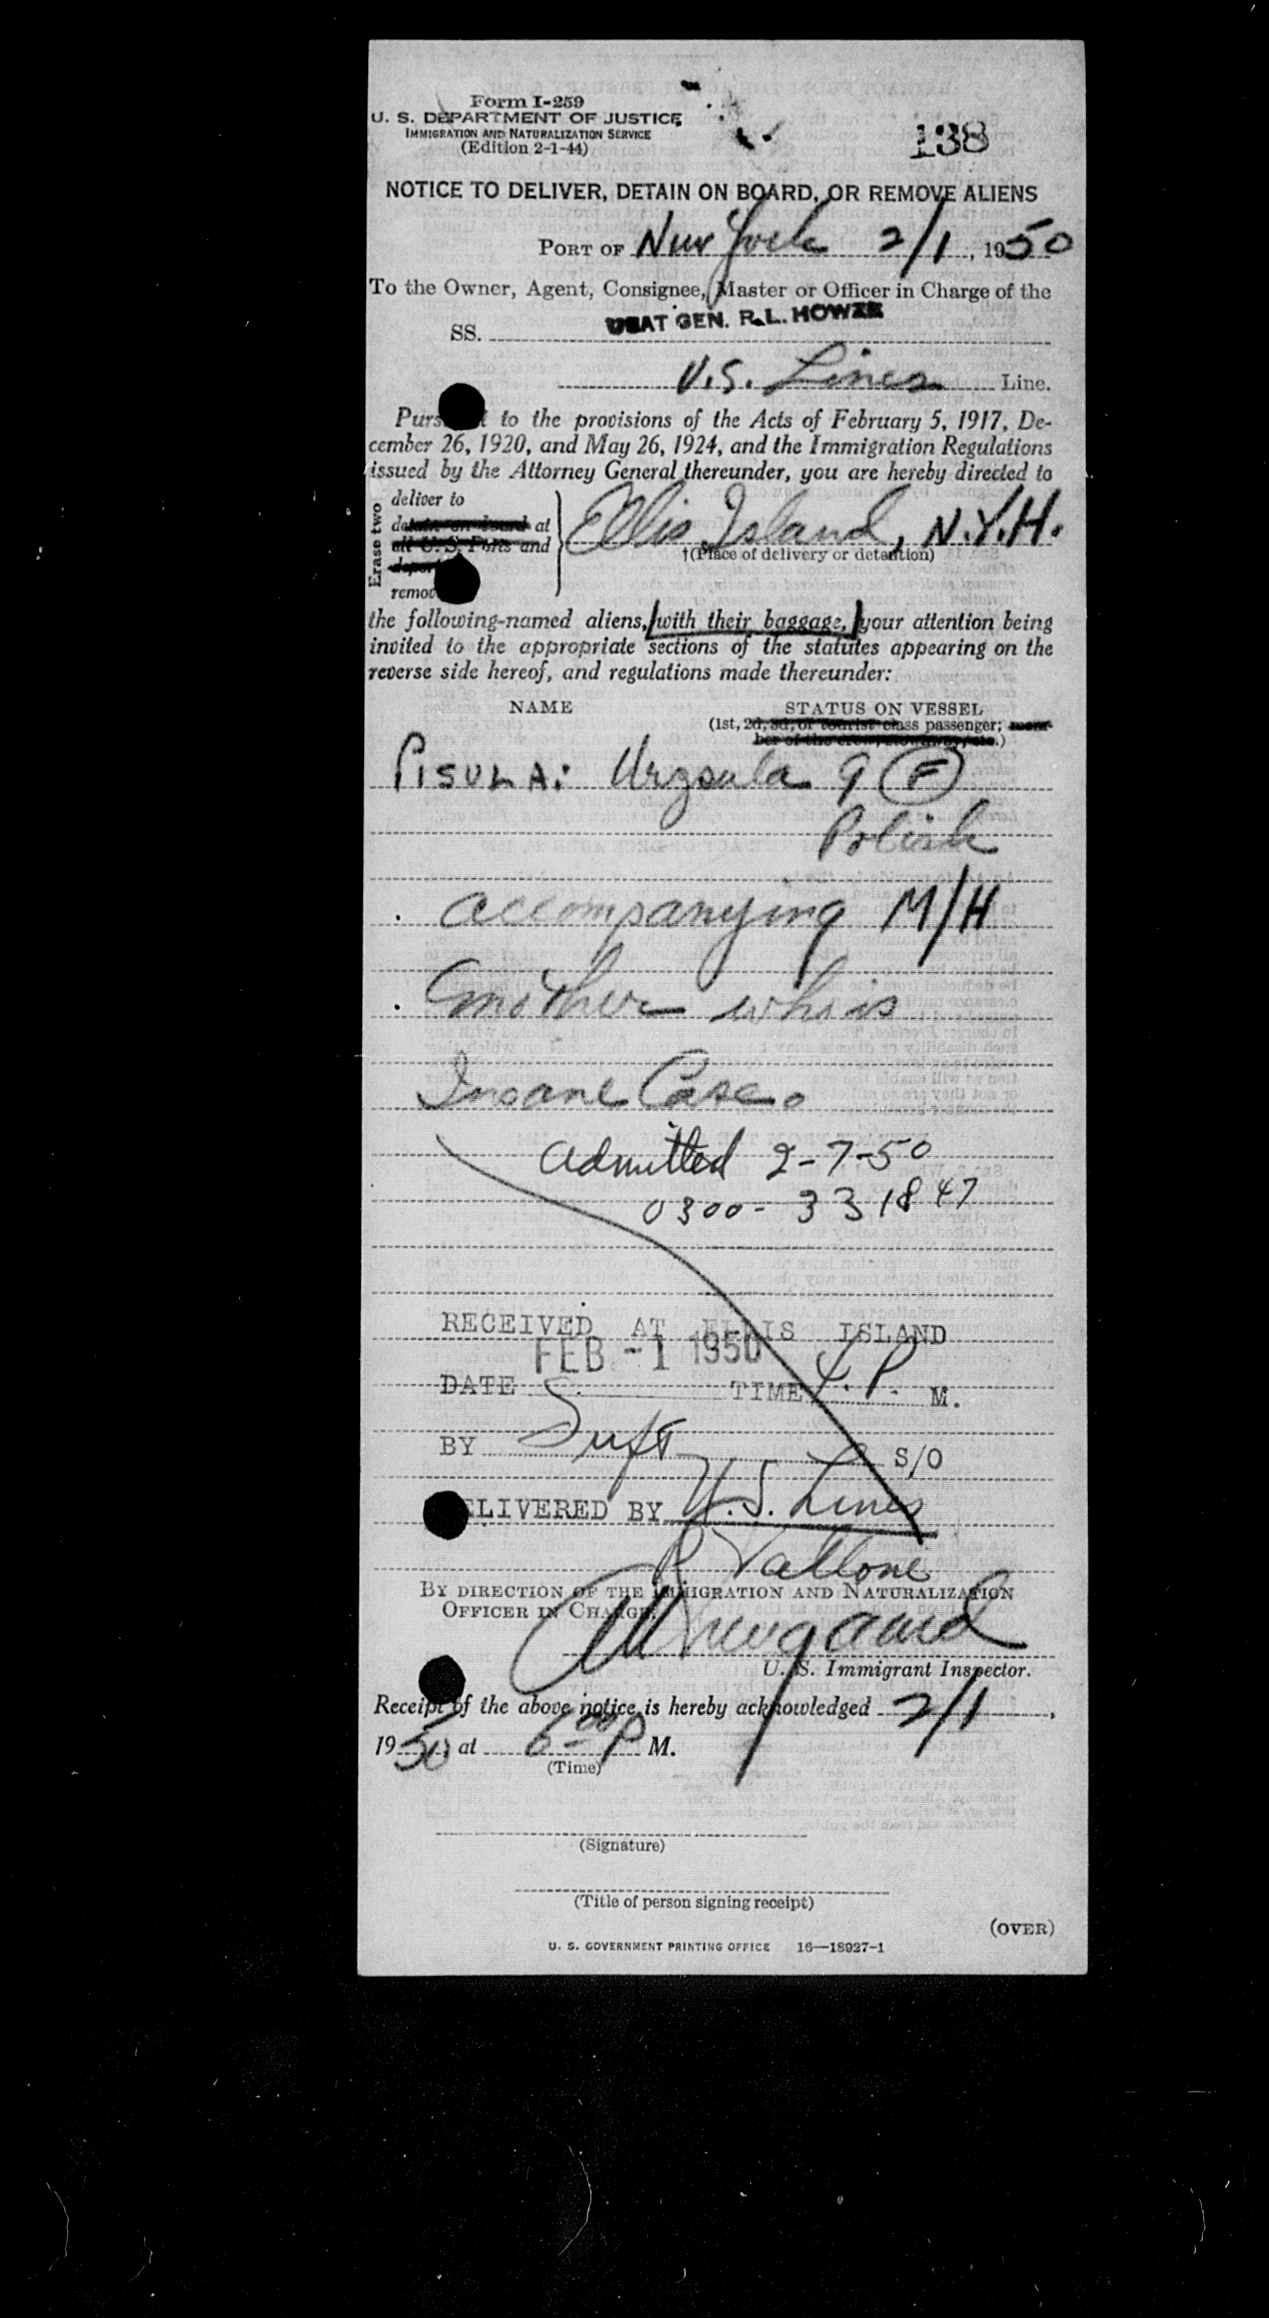 Form I-259
U. S. DEPARTMENT OF JUSTICE
IMMIGRATION AND NATURALIZATION SERVICE
(Edition 2-1-44)
138
NOTICE TO DELIVER, DETAIN ON BOARD, OR REMOVE ALIENS
PORT OF New York 2/1, 1950
To the Owner, Agent, Consignee, Master or Officer in Charge of the
SS. USAT GEN. R.L. HOWZE
U.S. Lines Line.
to the provisions of the Acts of February 5, 1917, De-
cember 26, 1920, and May 26, 1924, and the Immigration Regulations
issued by the Attorney General thereunder, you are hereby directed to
Erase two
deliver to
detain on board at
all U. S. Ports and
remove
Ellis Island, N.Y.H.
†(Place of delivery or detention)
the following-named aliens, with their baggage, your attention being
invited to the appropriate sections of the statutes appearing on the
reverse side hereof, and regulations made thereunder:
NAME STATUS ON VESSEL
(1st, 2d, 3d, or tourist class passenger; mem-
ber of the crew, stowaway, etc.)
PISULA: Urzsula 9 F
Polish
accompanying M/H
mother who is
Insane Case.
Admitted 2-7-50
0300-331847
RECEIVED AT ELLIS ISLAND
FEB -1 1950
DATE TIME P. M.
BY S/O
DELIVERED BY U.S. Lines
P Vallone
BY DIRECTION OF THE IMMIGRATION AND NATURALIZATION
OFFICER IN CHARGE.
U. S. Immigrant Inspector.
Receipt of the above notice is hereby acknowledged 2/1,
1950, at 6 00 P M.
(Time)
(Signature)
(Title of person signing receipt)
(OVER)
U. S. GOVERNMENT PRINTING OFFICE 16—18927-1